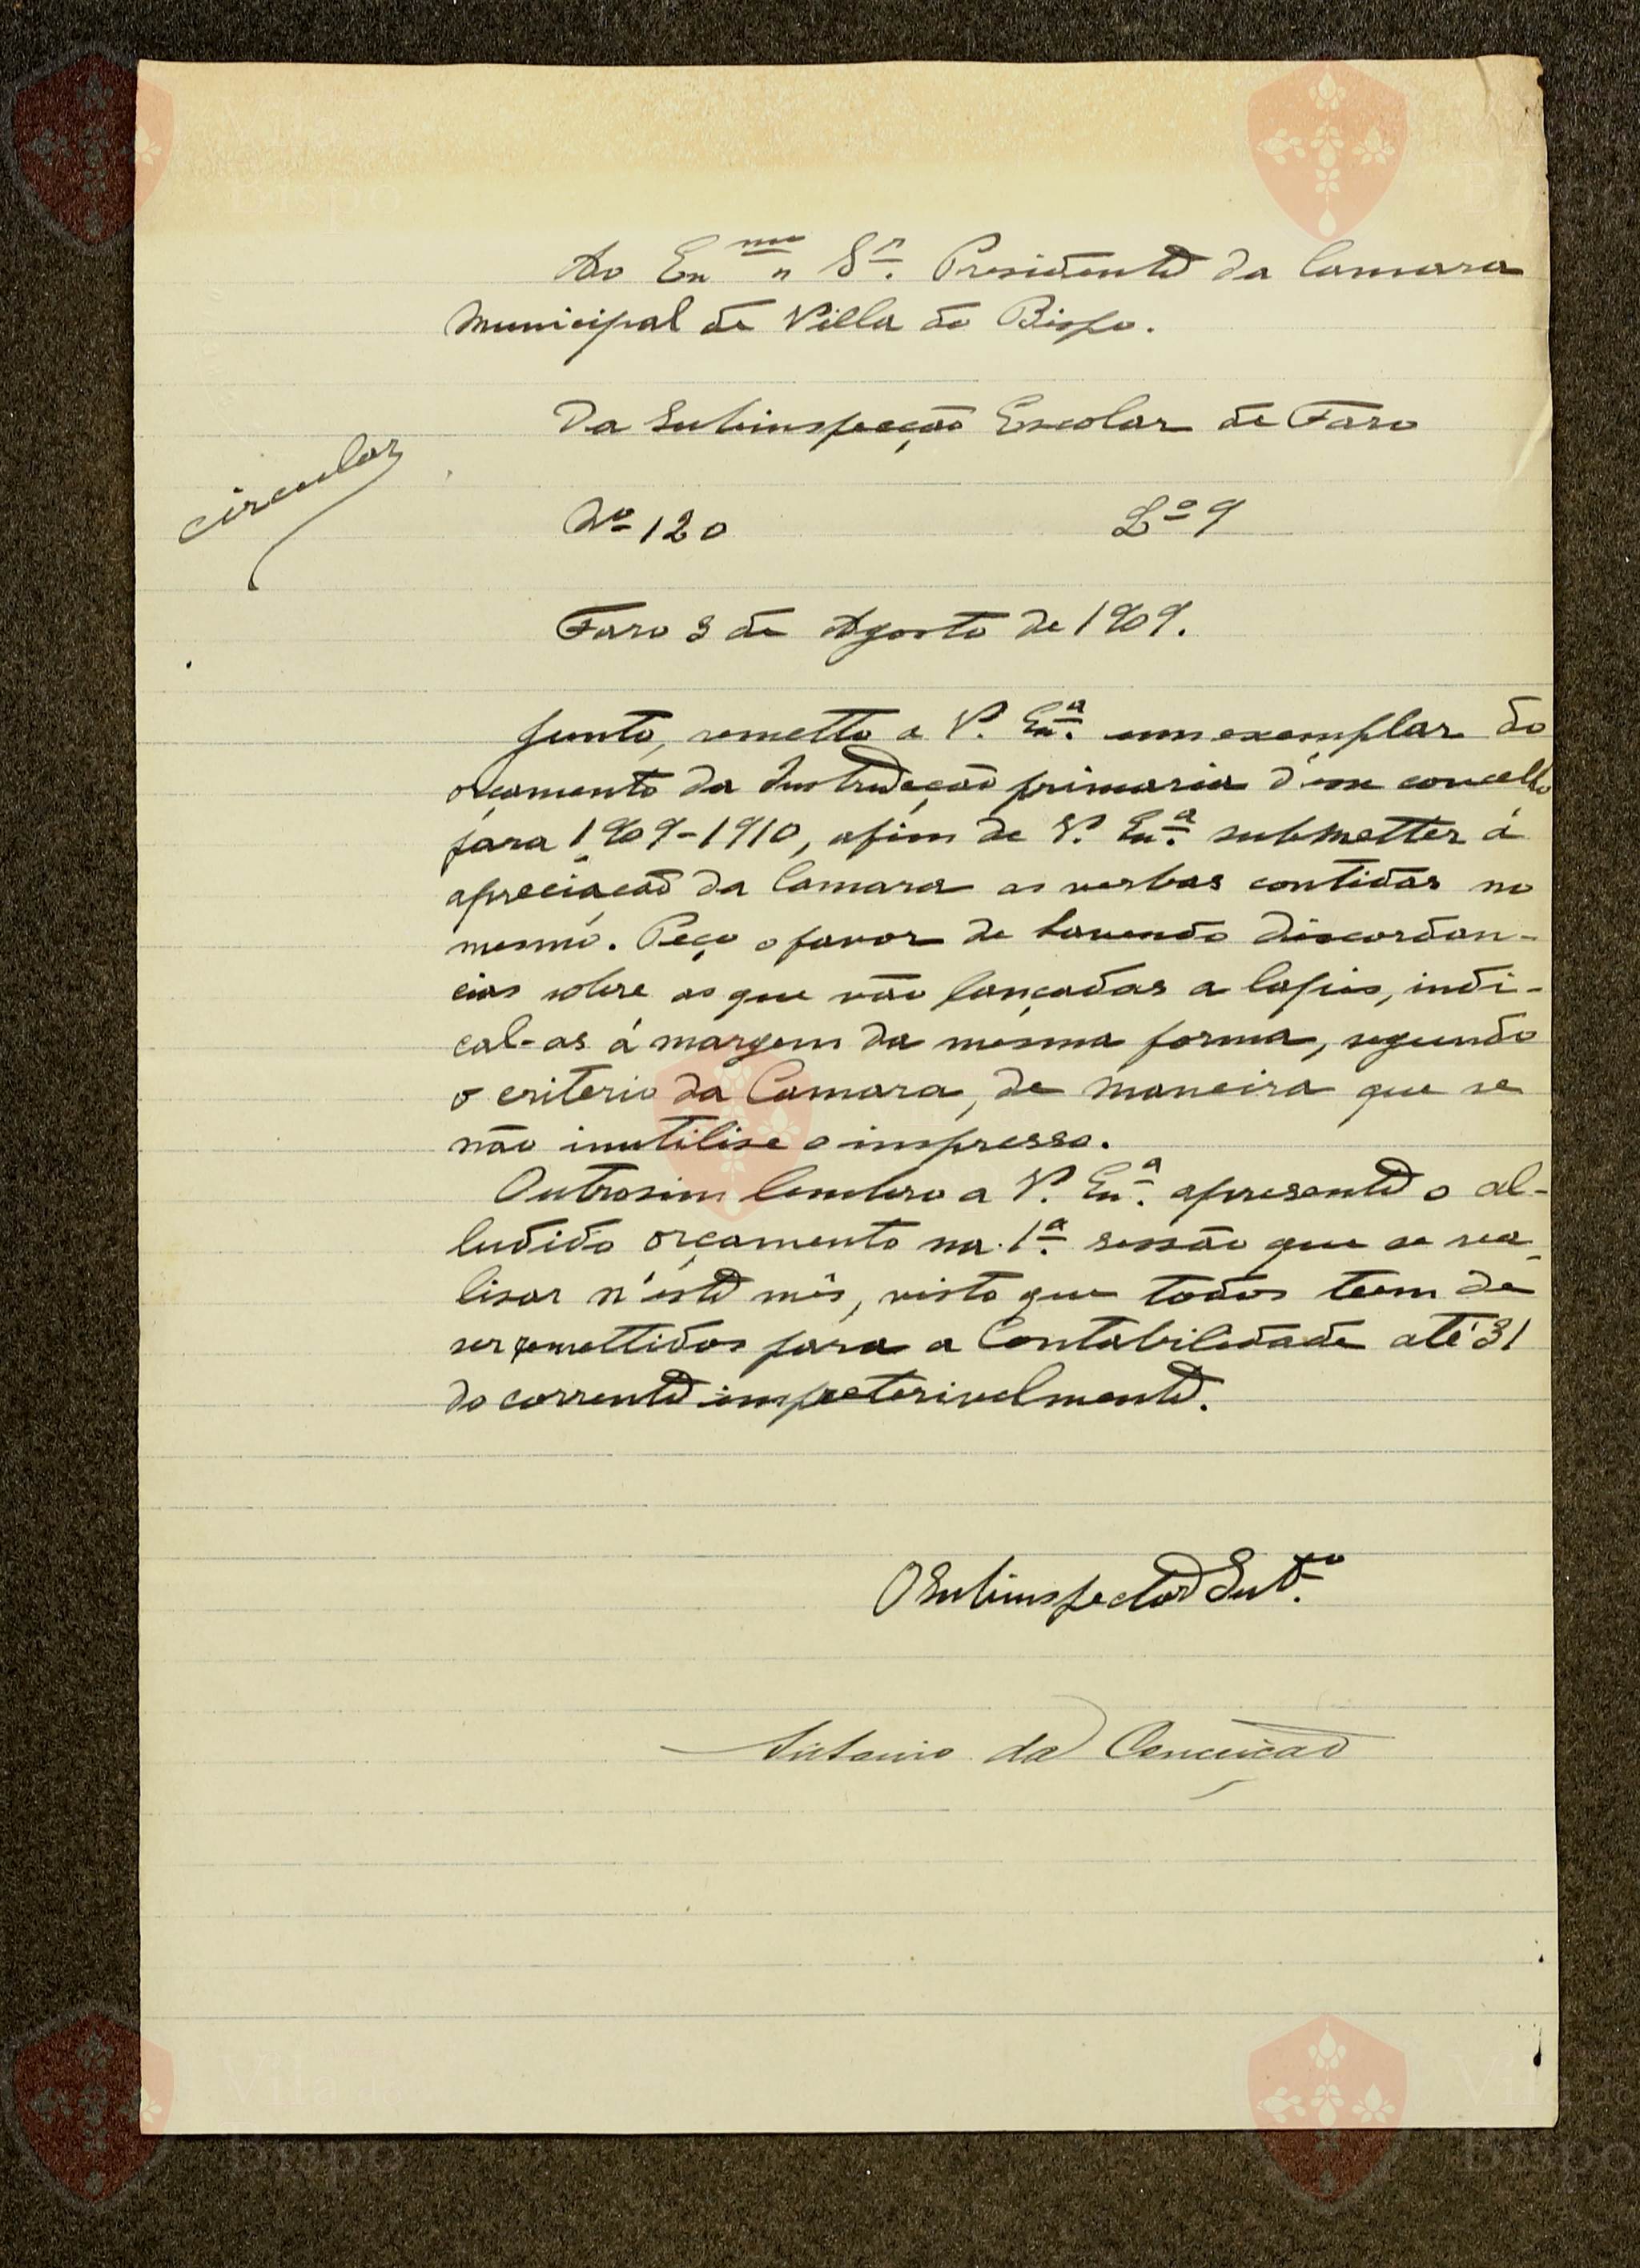 Ao Exmo Sr. Presidente da Camara
Municipal de Villa do Bispo.
Da Subinspecção Escolar de Faro
circular
No 120 Lo 9
Faro 3 de Agosto de 1909.
Junto, remetto a V. Exa. um exemplar do
orçamento da Instrucção primaria d'esse concelho
para 1909-1910, afim de V. Exa. submetter á
apreciação da Camara as verbas contidas no
mesmo. Peço o favor de havendo discordan-
cias sobre as que vão lançadas a lapis, indi-
cal-as á margem da mesma forma, segundo
o criterio da Camara, de maneira que se
não inutilise o impresso.
Outrosim lembro a V. Exa. apresente o al-
ludido orçamento na 1a. sessão que se rea-
lisar n'este mês, visto que todos teem de
ser remettidos para a Contabilidade até 31
do corrente impreterivelmente.
O Subinspector Intº.
Antonio da Conceição
Vila do
Bispo